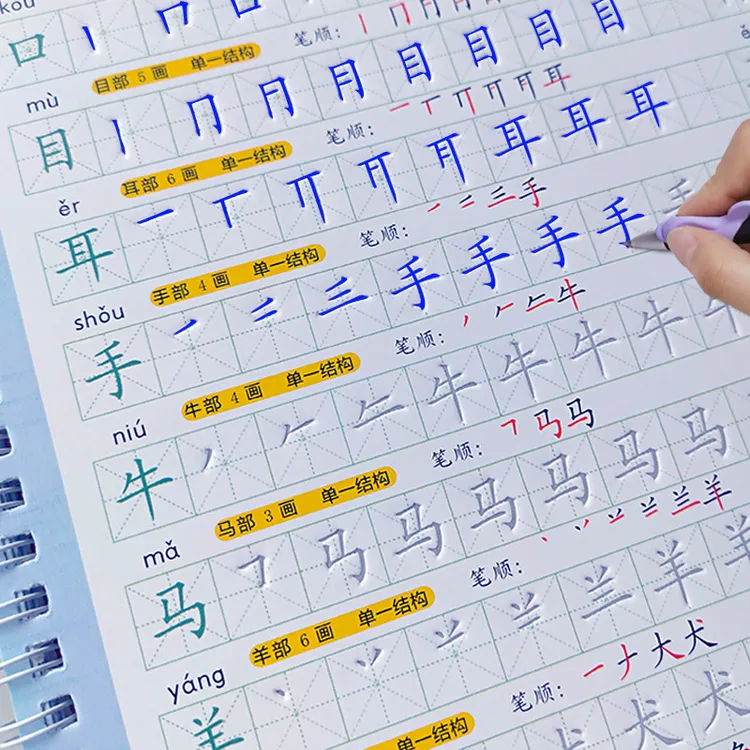 口 丨 冂 口
目部 5 画 单一结构 笔顺:
mù
目 丨 冂 目 目 目 目
耳部 6 画 单一结构 笔顺: 耳
ěr
耳 一 丅 耳 耳 耳
手部 4 画 单一结构 笔顺: 手
shǒu
手 手 手 手 手 手
牛部 4 画 单一结构 笔顺: 牛
niú
牛 丿 𠂉 牛 牛 牛 牛 牛
马部 3 画 单一结构 笔顺: ㇕ 马 马
mǎ
马 ㇕ 马 马 马 马 马 马
羊部 6 画 单一结构 笔顺: 羊
yáng
羊 丶 丷 羊 羊
单一结构 笔顺: 一 ナ 大 犬
犬 犬 犬